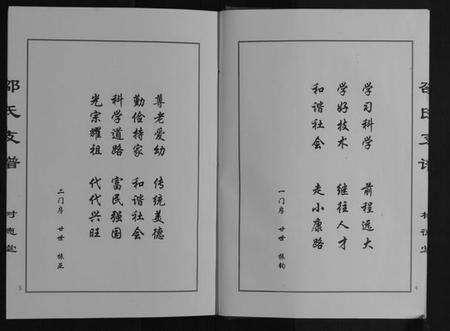 学习科学 前程远大
学好技术 继往人才
和谐社会 走小康路
一门序 廿世 振钧
邵氏支谱
尊老爱幼 传统美德
勤俭持家 和谐社会
科学道路 富民强国
光宗耀祖 代代兴旺
二门序 廿世 振亚
邵氏支谱